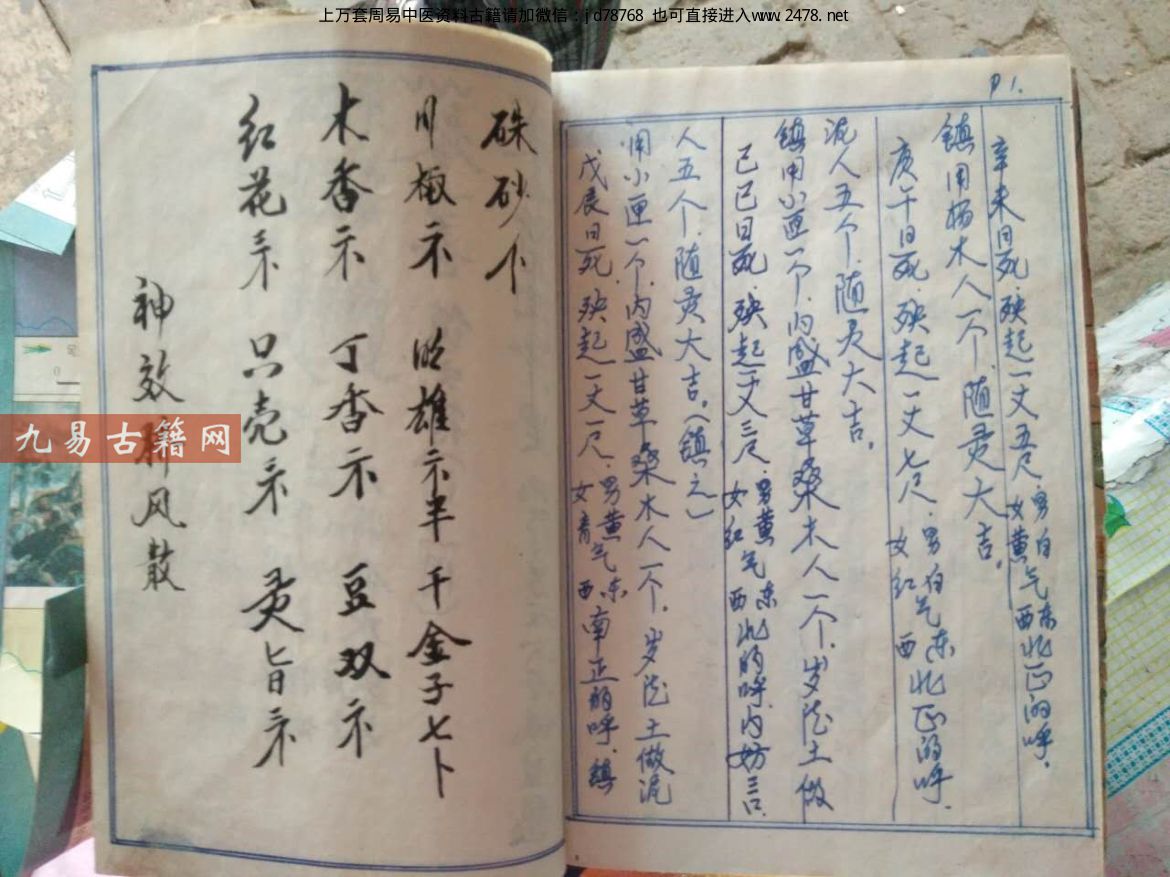 上万套周易中医资料古籍请加微信：jd78768 也可直接进入www.2478.net
神效 风散
红花 只壳 灵旨
木香 丁香 豆双
川椒 明雄 半 千金子七卜
砞砂下
P1.
戊辰日死.殃起一丈一尺.男黄女青气东西南正的呼.镇
用小匣一个.内盛甘草桑木人一个.岁德土做泥
人五个.随灵大吉。(镇之)
己巳日死.殃起一丈三尺.男黄女红气东西北的呼.内妨三口.
镇用小匣一个.内盛甘草桑木人一个.岁德土做
泥人五个.随灵大吉。
庚午日死.殃起一丈七尺.男白女红气东西北正的呼.
镇用杨木人一个.随灵大吉。
辛未日死.殃起一丈五尺.男白女黄气东西北正的呼.
九易古籍网